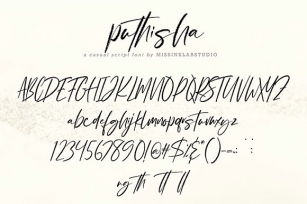 puthisha
a casual script font by MISSINKLABSTUDIO
ABCDEFGHIJKLMNOPQRSTUVWXYZ
abcdefghijklmnopqrstuvwxyz
1234567890!@#$%&*()-=_.:;
ng th tt ll